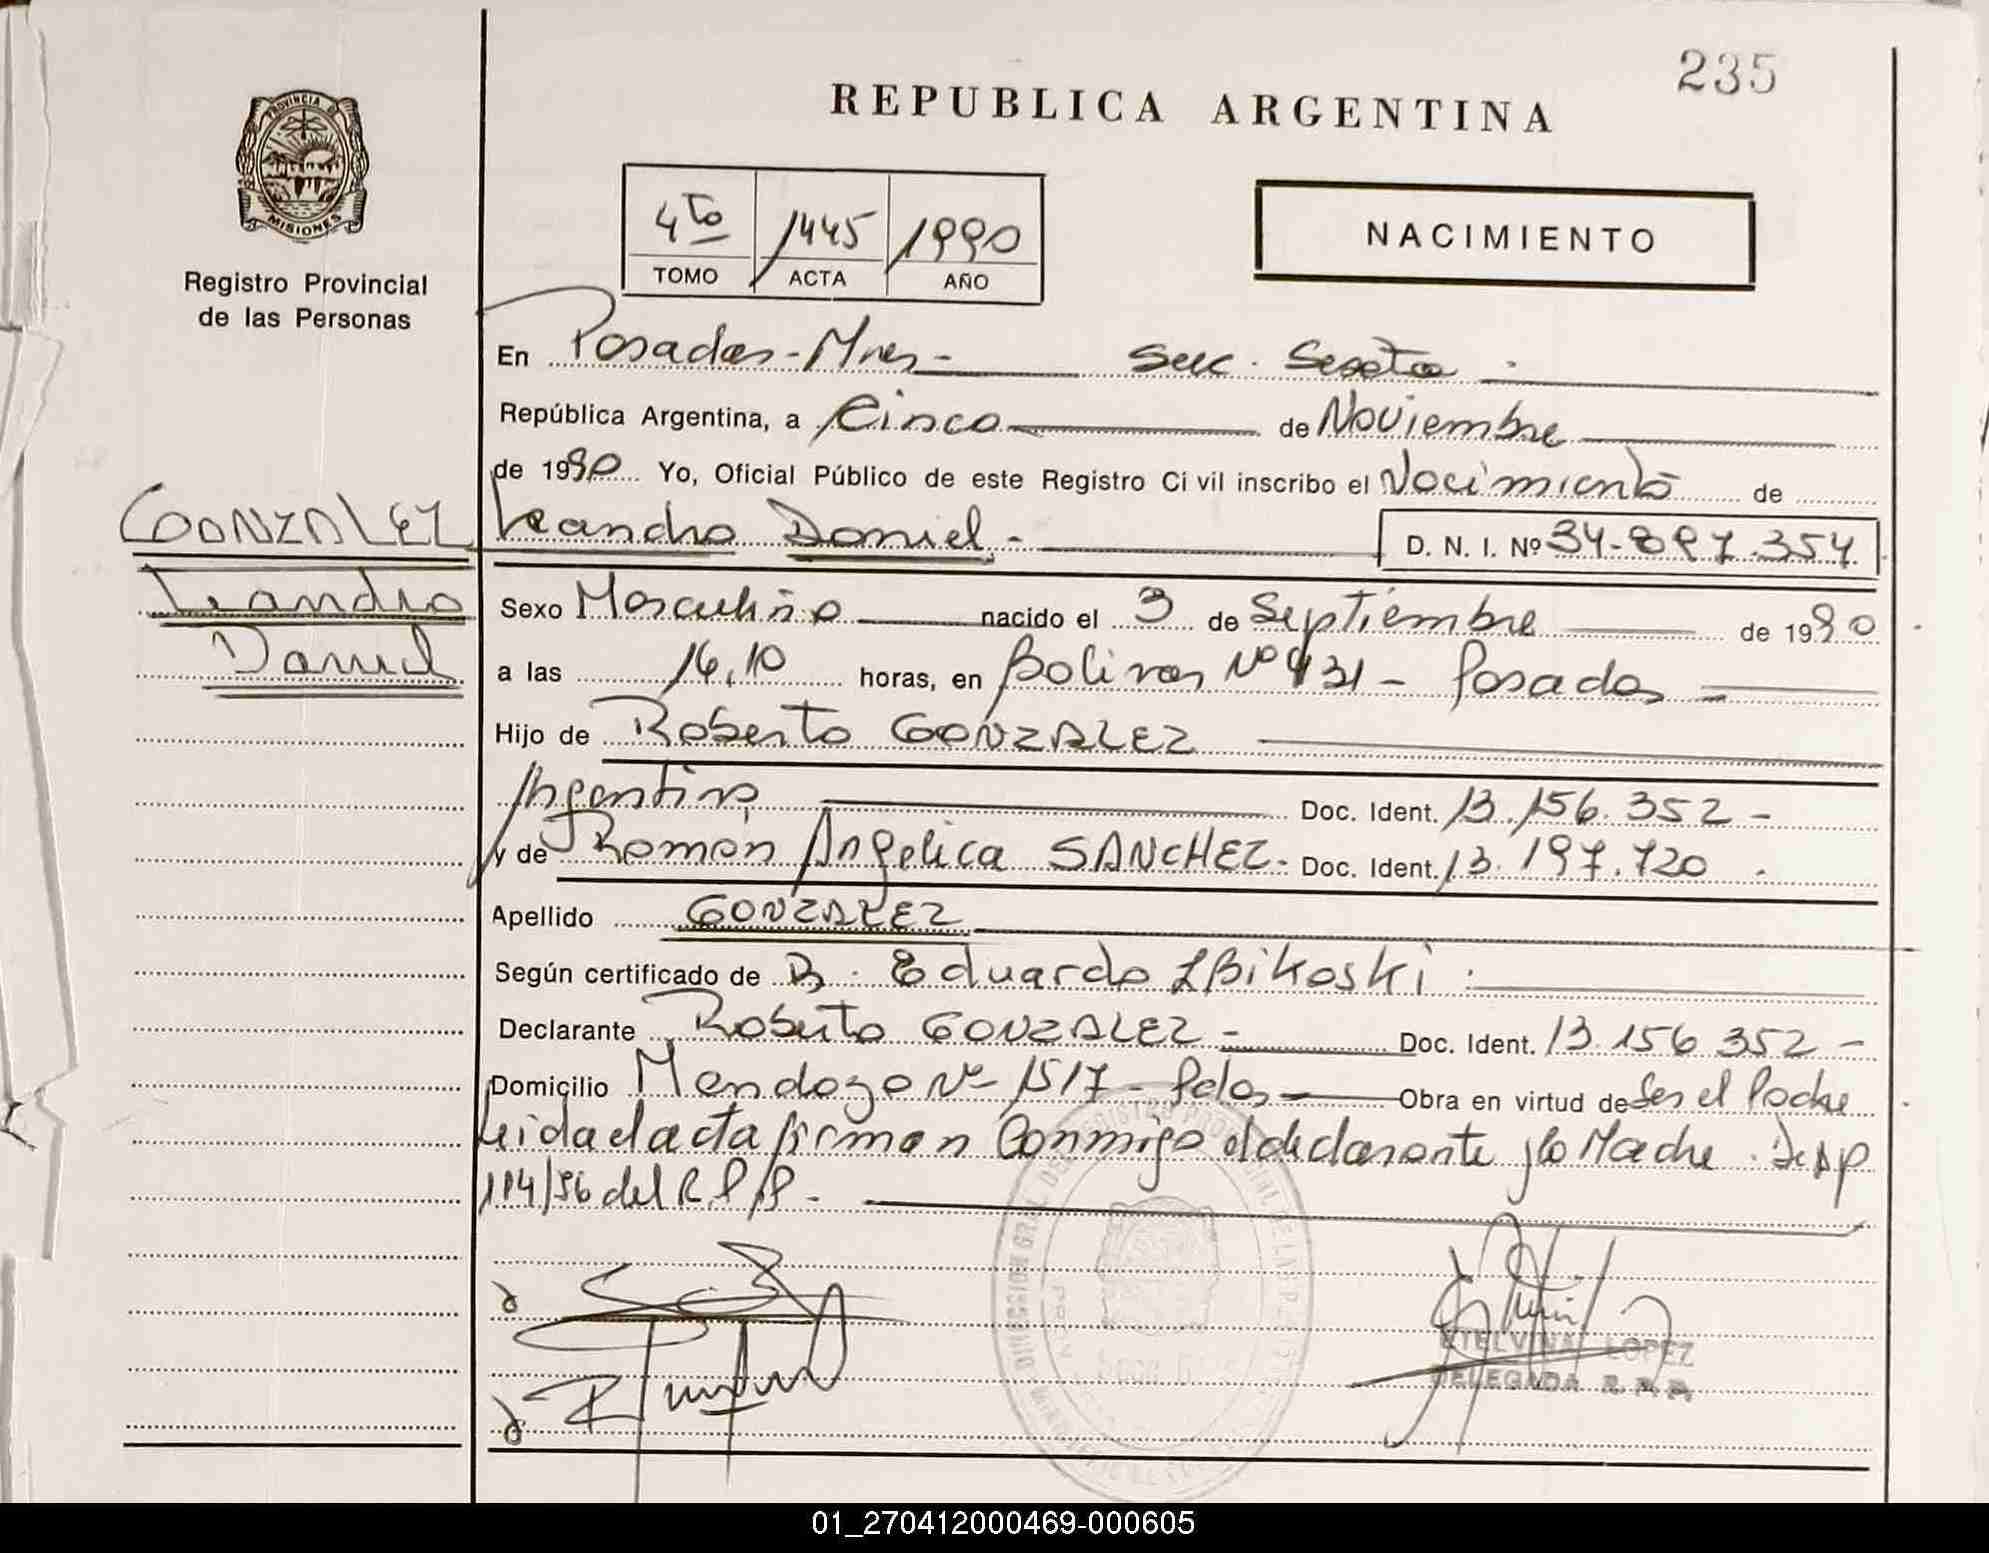 235
REPUBLICA ARGENTINA
PROVINCIA DE
MISIONES
Registro Provincial
de las Personas
4to 1445 1990
TOMO ACTA AÑO
NACIMIENTO
En Posadas - Mnes - Secc. Sexta.
República Argentina, a Cinco de Noviembre
de 1990 Yo, Oficial Público de este Registro Civil inscribo el Nacimiento de
GONZALEZ
Leandro Daniel - D. N. I. Nº 34.897.354
Leandro
Daniel
Sexo Masculino nacido el 3 de Septiembre de 1990
a las 14,10 horas, en Bolivar Nº 431 - Posadas -
Hijo de Roberto GONZALEZ
Argentino Doc. Ident. 13.156.352 -
y de Ramona Angelica SANCHEZ - Doc. Ident. 13.197.720
Apellido GONZALEZ
Según certificado de Eduardo ZBikoski
Declarante Roberto GONZALEZ - Doc. Ident. 13.156.352 -
Domicilio Mendoza Nº 1517 - Pdas - Obra en virtud de Ser el Padre
Leida el acta firman Conmigo el declarante y la Madre. Disp
114/86 del R.P.P. -
ETELVINA LOPEZ
DELEGADA R.P.P.
01_270412000469-000605